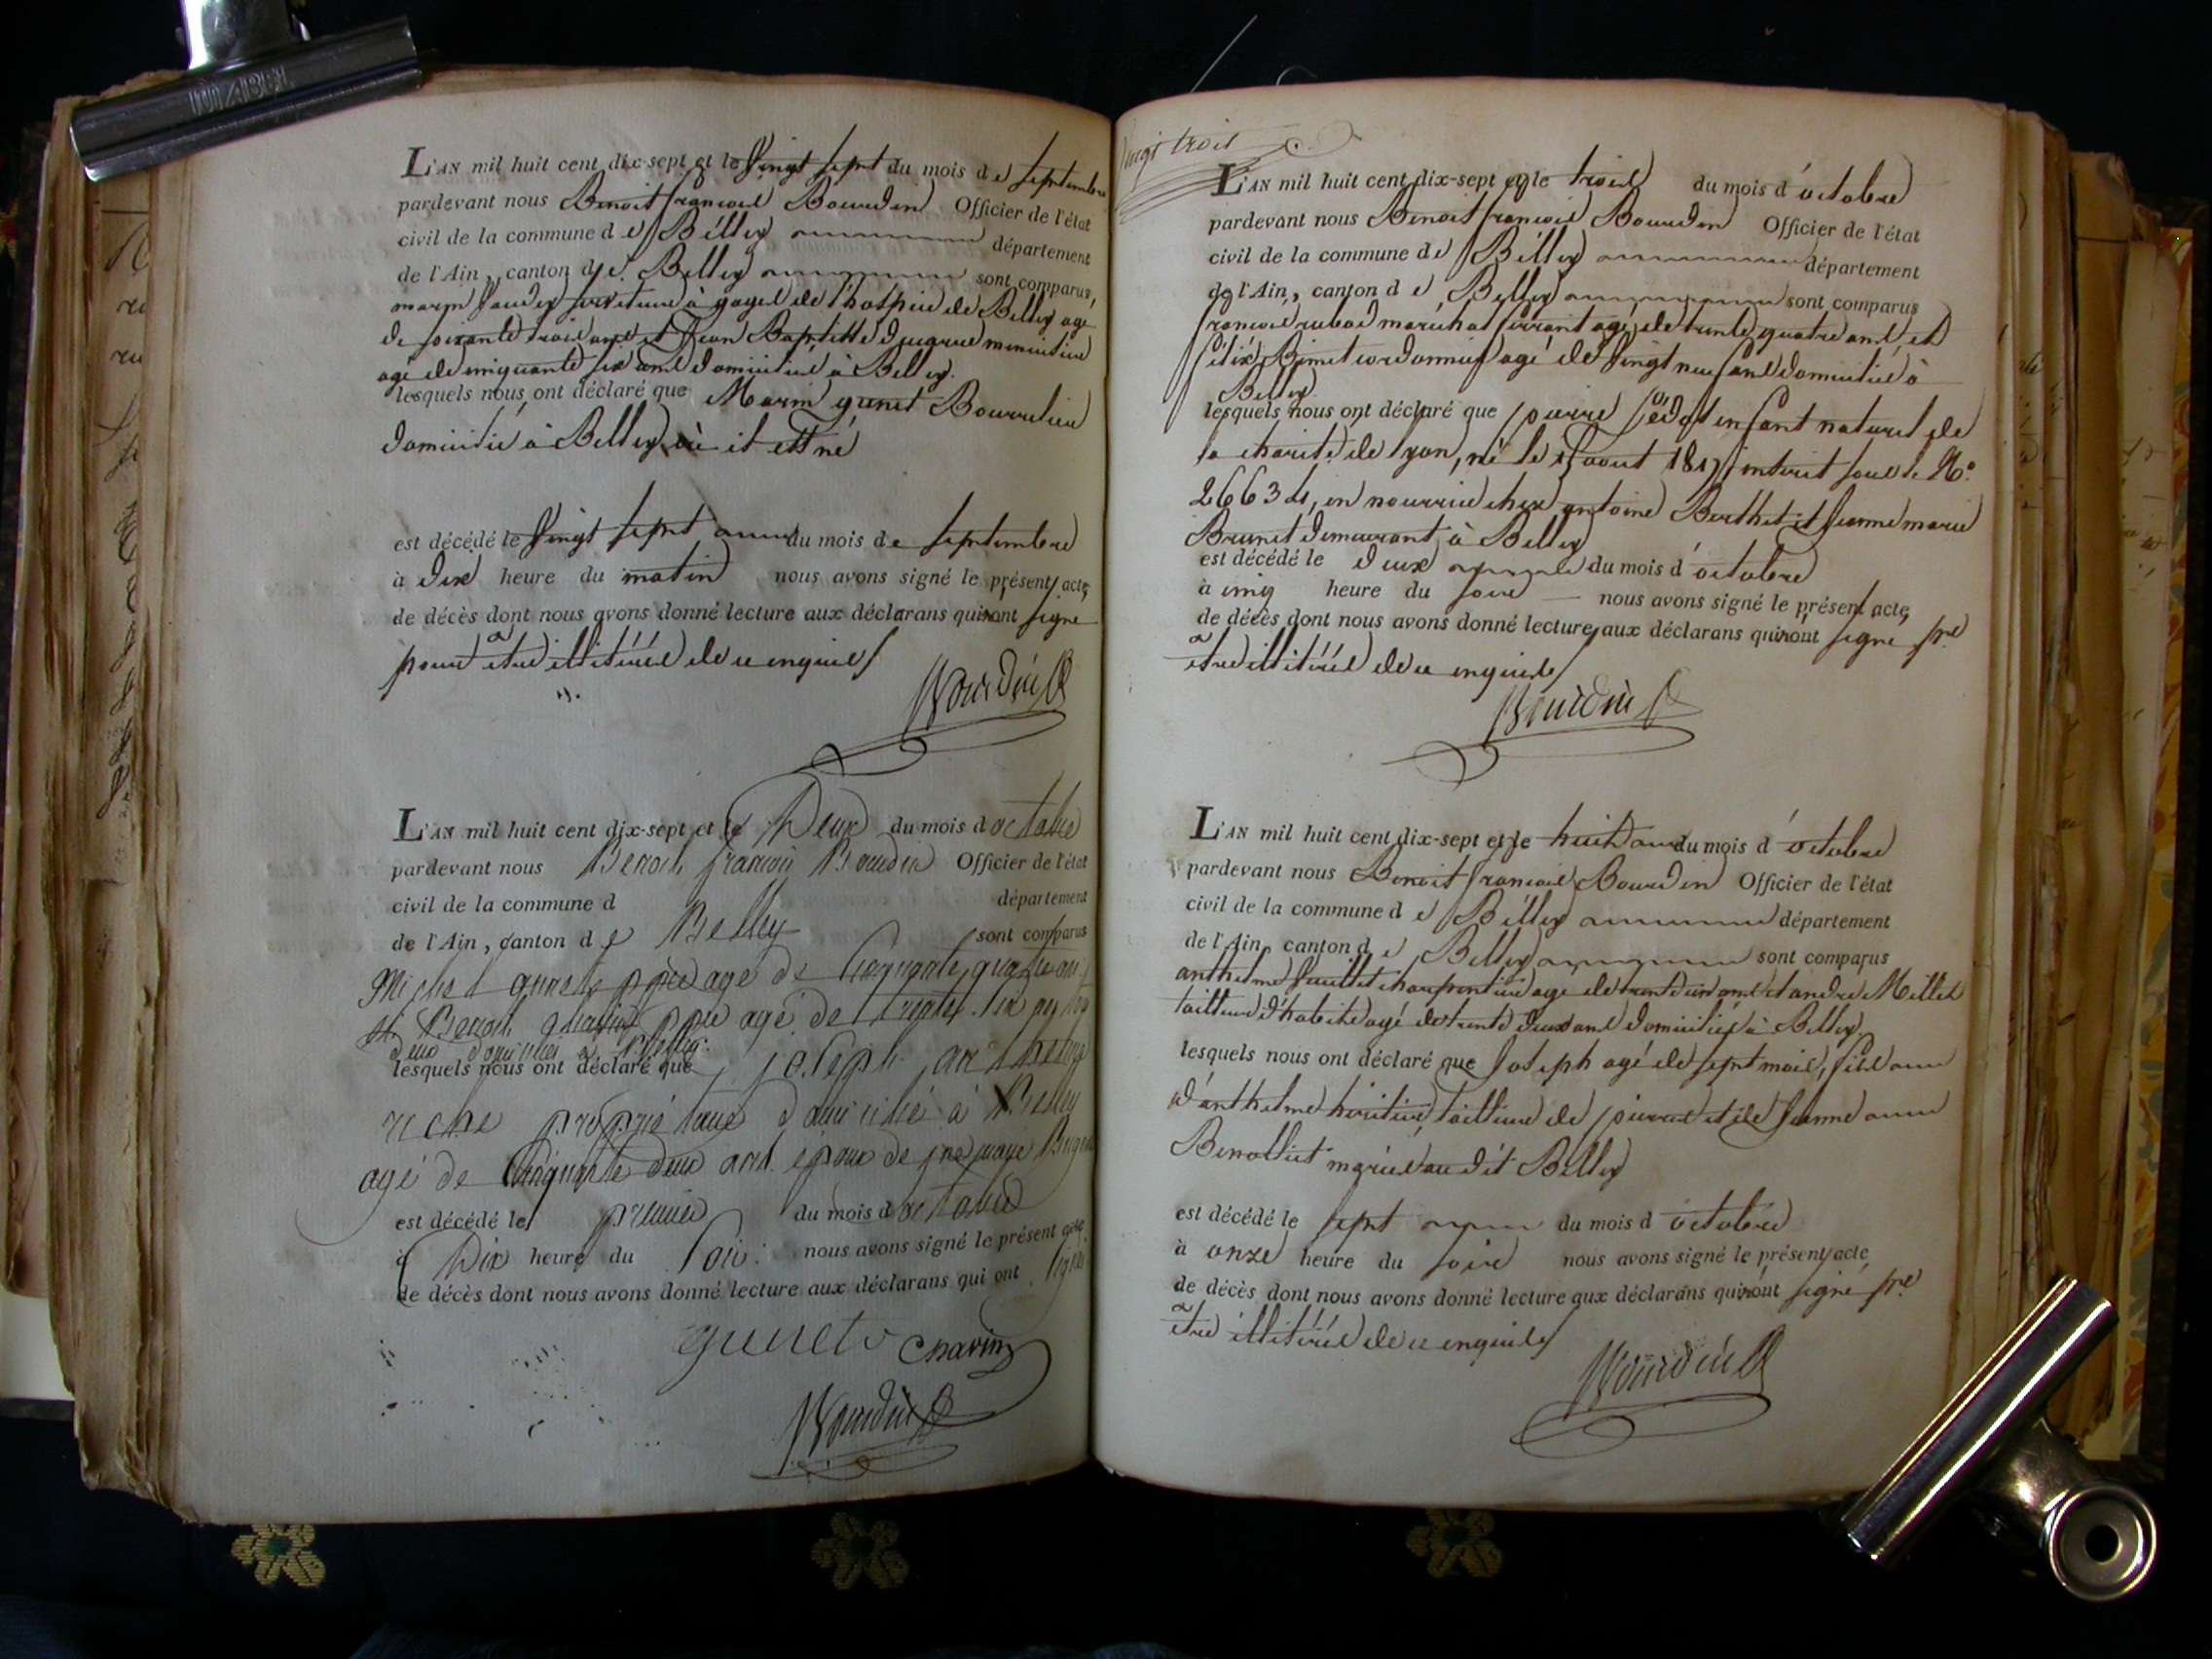 L'AN mil huit cent dix-sept et le vingt sept du mois de septembre
pardevant nous Benoit françois Bourdin Officier de l'état
civil de la commune de Belley département
de l'Ain, canton de Belley sont comparus,
serviteur à gages de l'hospice de Belley agé
de soixante trois ans et Jean Baptiste
agé de cinquante six ans domiciliés à Belley.
lesquels nous ont déclaré que Marin Bourrelier
domicilié à Belley où il est né
est décédé le vingt sept du mois de septembre
à dix heure du matin nous avons signé le présent acte
de décès dont nous avons donné lecture aux déclarans qui n'ont signé
pour être illitérés de ce enquis
Bourdin
L'AN mil huit cent dix-sept et le Deux du mois d'octobre
pardevant nous Benoit françois Bourdin Officier de l'état
civil de la commune d département
de l'Ain, canton de Belley sont comparus
Michel agé de Cinquante quatre ans
et Benoit agé de trente six ans
deux domiciliés à Belley.
lesquels nous ont déclaré que joseph anthelme
riche propriétaire domicilié à Belley
agé de Cinquante deux ans époux de
est décédé le premier du mois d'octobre
à Dix heure du soir nous avons signé le présent acte
de décès dont nous avons donné lecture aux déclarans qui ont signé
Bourdin
vingt trois
L'AN mil huit cent dix-sept et le trois du mois d'octobre
pardevant nous Benoit françois Bourdin Officier de l'état
civil de la commune de Belley département
de l'Ain, canton de Belley sont comparus
françois maréchal ferrant agé de trente quatre ans et
félix Bimet cordonnier agé de vingt neuf ans domicilié à
Belley
lesquels nous ont déclaré que pierre enfant naturel de
la charité de lyon, né le aout 1817 inscrit sous le N.º
26634, en nourrice chez antoine Berthet et Jeanne marie
Brunet demeurant à Belley
est décédé le deux du mois d'octobre
à cinq heure du soir nous avons signé le présent acte
de décès dont nous avons donné lecture aux déclarans qui n'ont signé pr
être illitérés de ce enquis
Bourdin
L'AN mil huit cent dix-sept et le huit du mois d'octobre
pardevant nous Benoit françois Bourdin Officier de l'état
civil de la commune de Belley département
de l'Ain, canton de Belley sont comparus
anthelme charpentier agé de trente un ans et andré Millet
tailleur d'habits agé de trente deux ans domiciliés à Belley.
lesquels nous ont déclaré que Joseph agé de sept mois, fils
d'anthelme tailleur de pierres et de Jeanne
Benollict mariés au dit Belley
est décédé le sept du mois d'octobre
à onze heure du soir nous avons signé le présent acte
de décès dont nous avons donné lecture aux déclarans qui n'ont signé pr
être illitérés de ce enquis
Bourdin